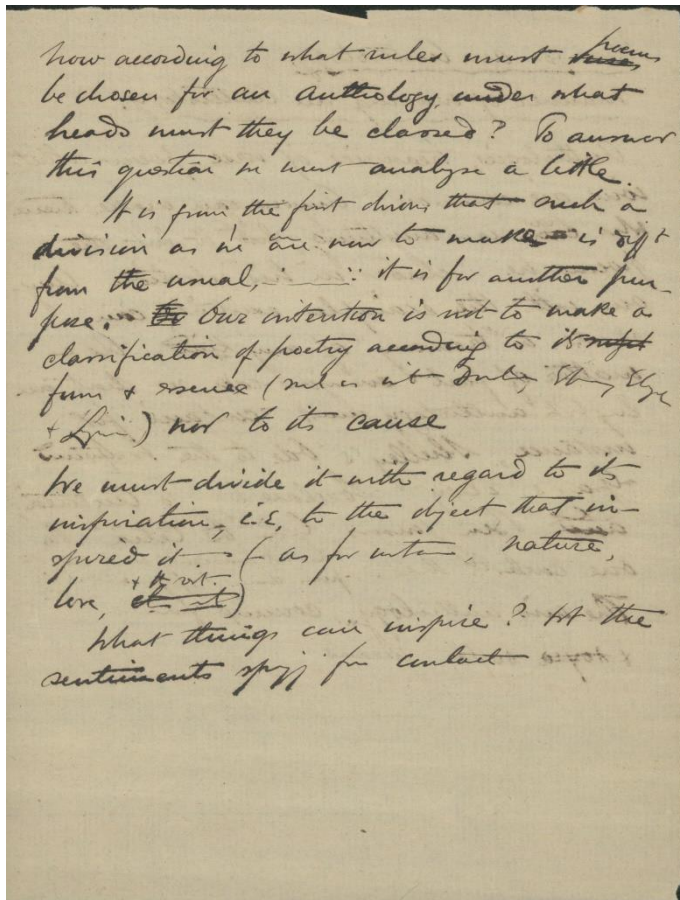 how according to what rules must poems
be chosen for an anthology, under what
heads must they be classed? To answer
this question we must analyse a little.
It is from the first obvious that such a
division as we are now to make is diff't
from the usual, : it is for another pur-
pose. Our intention is not to make a
classification of poetry according to its
form & essence (such as into
& Lyric) nor to its cause
We must divide it with regard to its
inspiration, i.e, to the object that in-
spired it (— as for instance, nature,
love, )
What things can inspire? 1st the
sentiments for contact